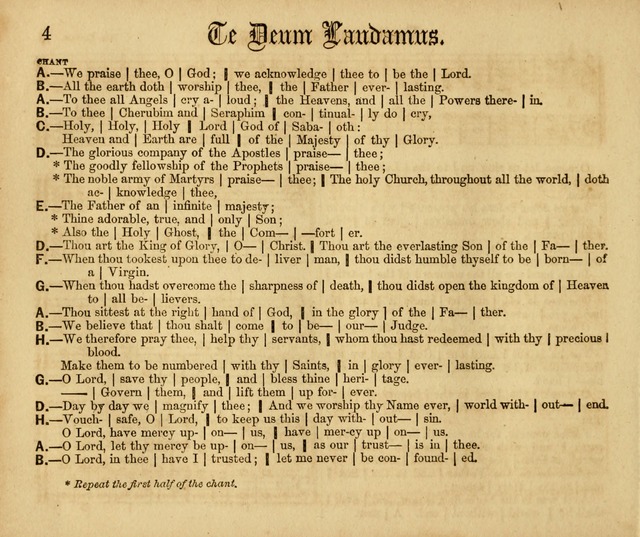 4
Te Deum Laudamus.
CHANT
A.—We praise | thee, O | God; ‖ we acknowledge | thee to | be the | Lord.
B.—All the earth doth | worship | thee, ‖ the | Father | ever- | lasting.
A.—To thee all Angels | cry a- | loud; ‖ the Heavens, and | all the | Powers there- | in.
B.—To thee | Cherubim and | Seraphim ‖ con- | tinual- | ly do | cry,
C.—Holy, | Holy, | Holy ‖ Lord | God of | Saba- | oth:
Heaven and | Earth are | full ‖ of the | Majesty | of thy | Glory.
D.—The glorious company of the Apostles | praise— | thee;
* The goodly fellowship of the Prophets | praise— | thee;
* The noble army of Martyrs | praise— | thee; ‖ The holy Church, throughout all the world, | doth
ac- | knowledge | thee,
E.—The Father of an | infinite | majesty;
* Thine adorable, true, and | only | Son;
* Also the | Holy | Ghost, ‖ the | Com— | —fort | er.
D.—Thou art the King of Glory, | O— | Christ. ‖ Thou art the everlasting Son | of the | Fa— | ther.
F.—When thou tookest upon thee to de- | liver | man, ‖ thou didst humble thyself to be | born— | of
a | Virgin.
G.—When thou hadst overcome the | sharpness of | death, ‖ thou didst open the kingdom of | Heaven
to | all be- | lievers.
A.—Thou sittest at the right | hand of | God, ‖ in the glory | of the | Fa— | ther.
B.—We believe that | thou shalt | come ‖ to | be— | our— | Judge.
H.—We therefore pray thee, | help thy | servants, ‖ whom thou hast redeemed | with thy | precious |
blood.
Make them to be numbered | with thy | Saints, ‖ in | glory | ever- | lasting.
G.—O Lord, | save thy | people, ‖ and | bless thine | heri- | tage.
—— | Govern | them, ‖ and | lift them | up for- | ever.
D.—Day by day we | magnify | thee; ‖ And we worship thy Name ever, | world with- | out— | end.
H.—Vouch- | safe, O | Lord, ‖ to keep us this | day with- | out— | sin.
O Lord, have mercy up- | on— | us, ‖ have | mer-cy up | on— | us.
A.—O Lord, let thy mercy be up- | on— | us, ‖ as our | trust— | is in | thee.
B.—O Lord, in thee | have I | trusted; ‖ let me never | be con- | found- | ed.
* Repeat the first half of the chant.